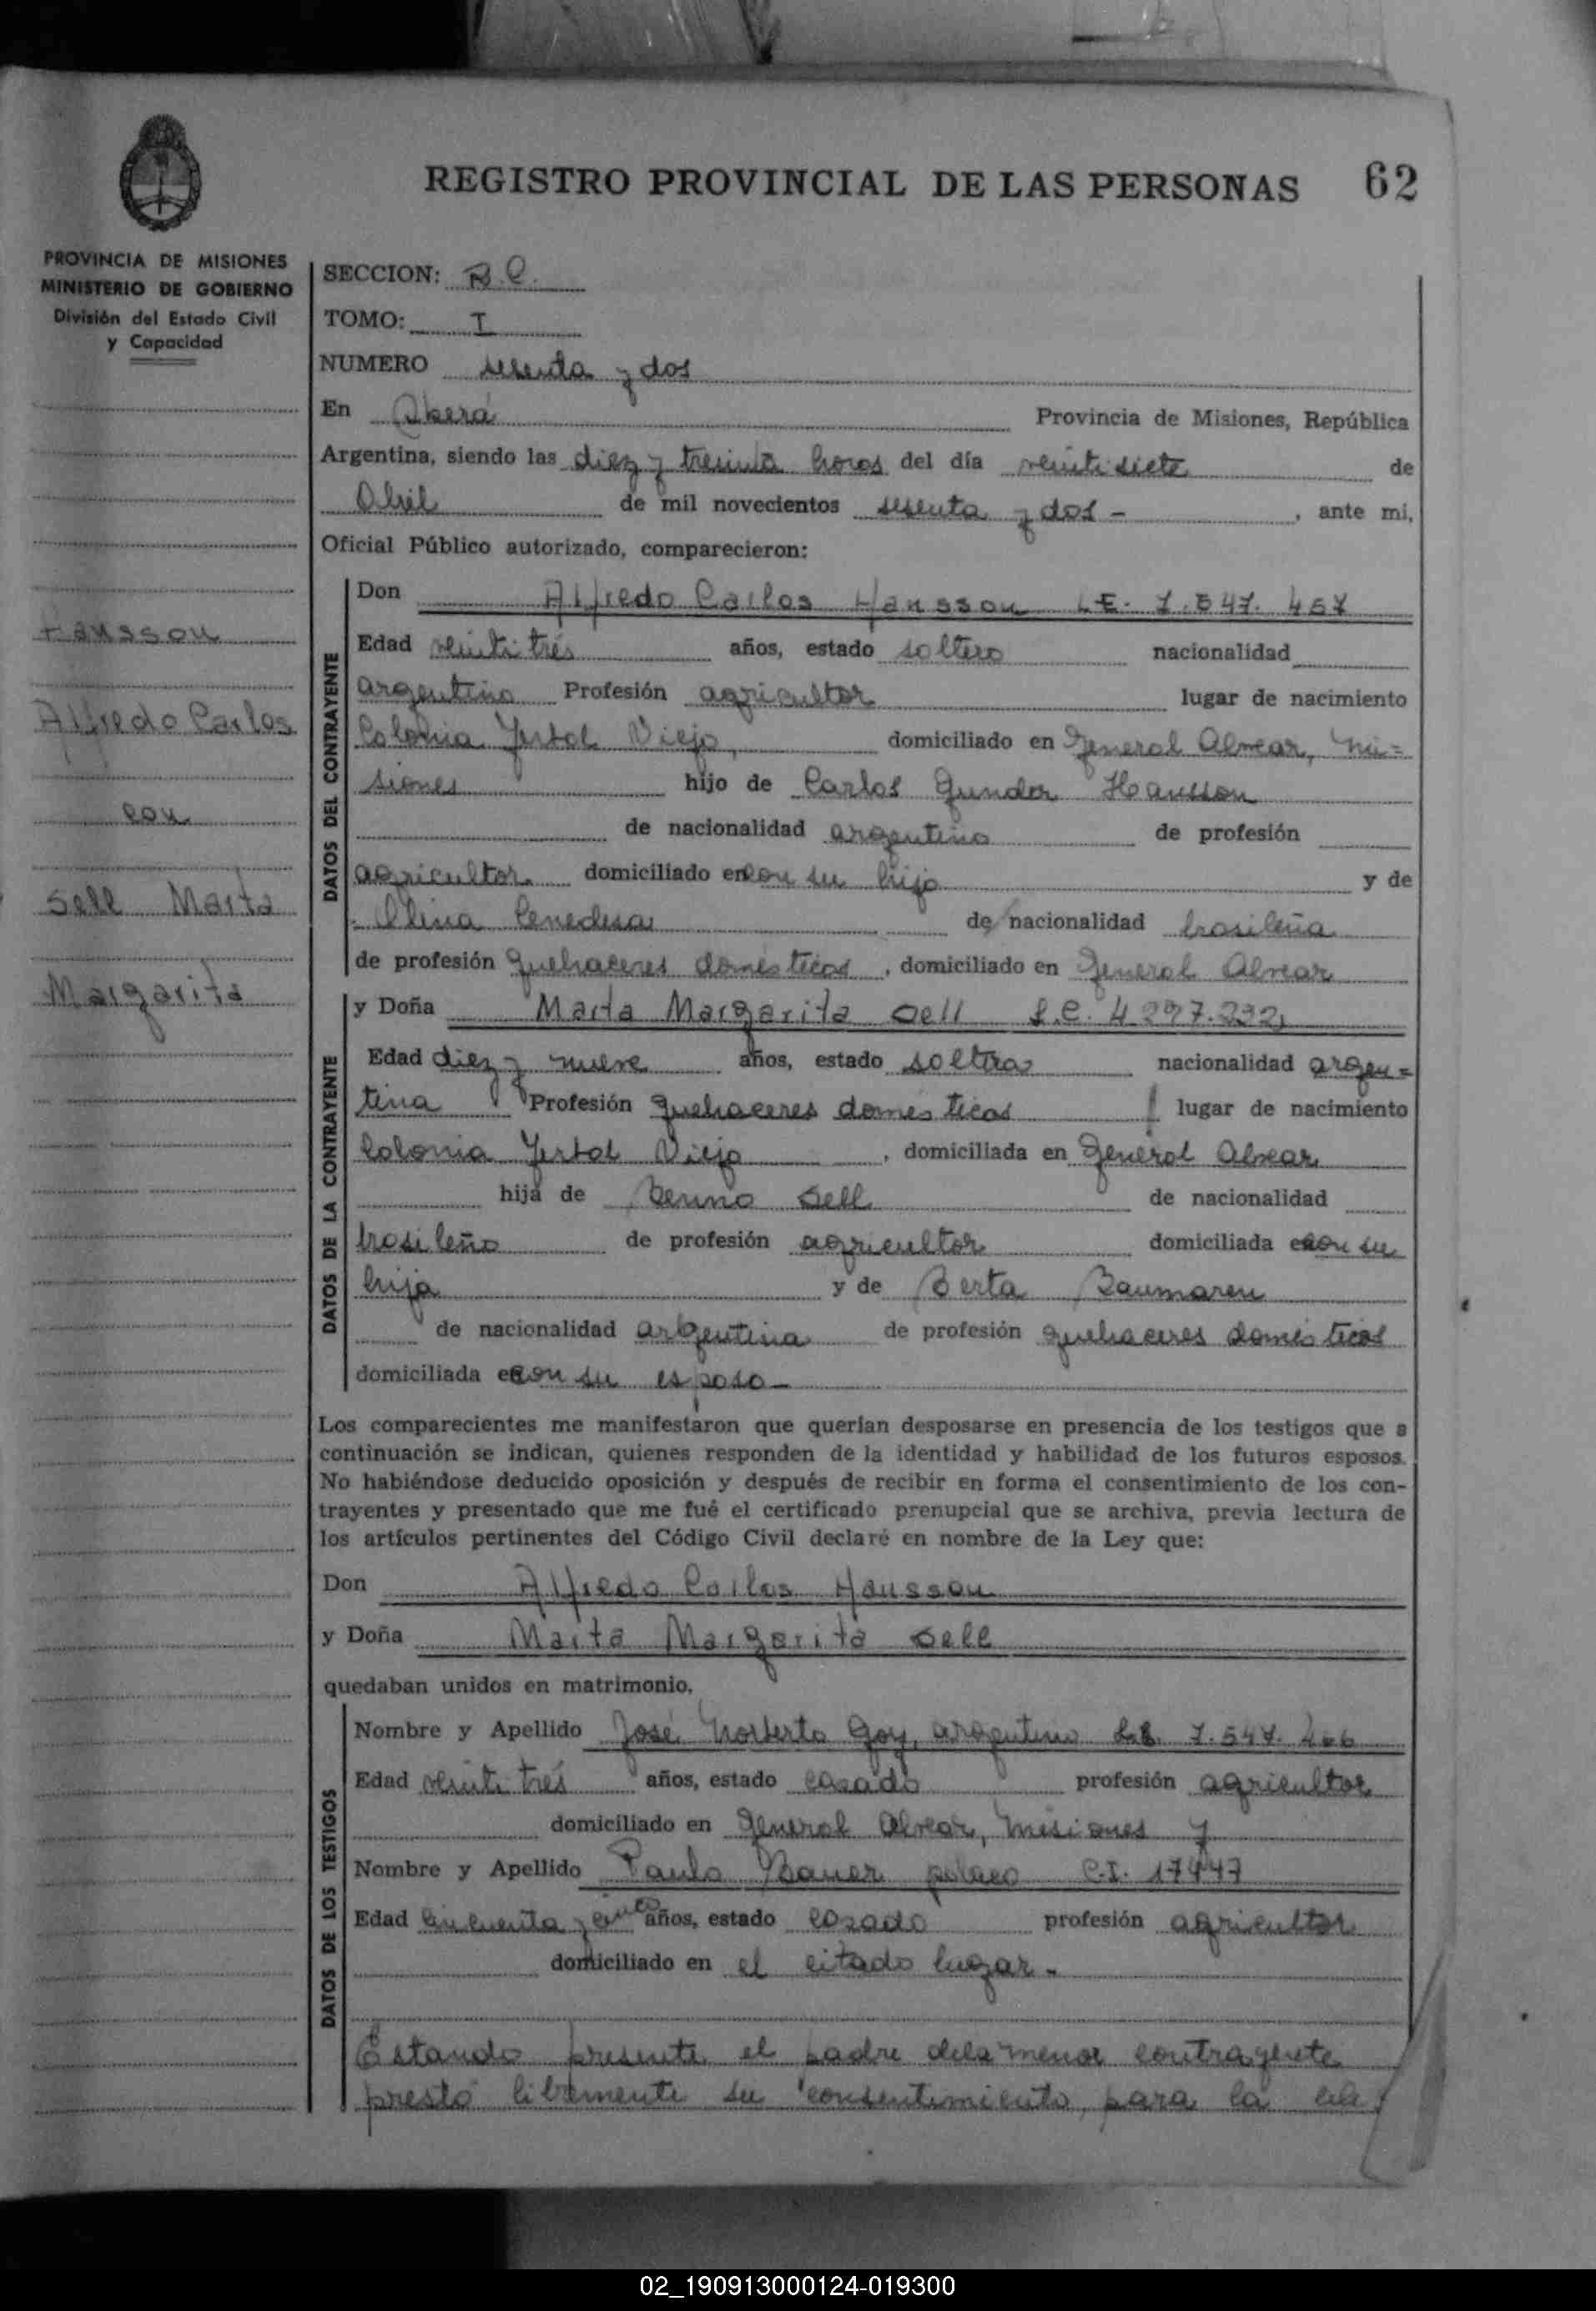 REGISTRO PROVINCIAL DE LAS PERSONAS 62
PROVINCIA DE MISIONES
MINISTERIO DE GOBIERNO
División del Estado Civil
y Capacidad
Hansson
Alfredo Carlos
con
Sell Marta
Margarita
SECCION: B.C.
TOMO: I
NUMERO sesenta y dos
En Oberá Provincia de Misiones, República
Argentina, siendo las diez y treinta horas del día veintisiete de
Abril de mil novecientos sesenta y dos - , ante mi,
Oficial Público autorizado, comparecieron:
DATOS DEL CONTRAYENTE
Don Alfredo Carlos Hansson L.E. 7.547.457
Edad veintitrés años, estado soltero nacionalidad
argentino Profesión agricultor lugar de nacimiento
Colonia Yerbal Viejo, domiciliado en General Alvear, Mi=
siones hijo de Carlos Gundor Hansson
de nacionalidad argentino de profesión
agricultor domiciliado en con su hijo y de
de nacionalidad brasileña
de profesión quehaceres domésticos , domiciliado en General Alvear
DATOS DE LA CONTRAYENTE
y Doña Marta Margarita Sell L.C. 4.297.232,
Edad diez y nueve años, estado soltera nacionalidad argen=
tina Profesión quehaceres domésticos lugar de nacimiento
Colonia Yerbal Viejo , domiciliada en General Alvear
hija de Benno Sell de nacionalidad
brasileño de profesión agricultor domiciliada en con su
hija y de Berta Baumaren
de nacionalidad argentina de profesión quehaceres domésticos
domiciliada en con su esposo -
Los comparecientes me manifestaron que querían desposarse en presencia de los testigos que a
continuación se indican, quienes responden de la identidad y habilidad de los futuros esposos.
No habiéndose deducido oposición y después de recibir en forma el consentimiento de los con-
trayentes y presentado que me fué el certificado prenupcial que se archiva, previa lectura de
los artículos pertinentes del Código Civil declaré en nombre de la Ley que:
Don Alfredo Carlos Hansson
y Doña Marta Margarita Sell
quedaban unidos en matrimonio.
DATOS DE LOS TESTIGOS
Nombre y Apellido José Norberto Goy, argentino L.E. 7.547.466
Edad veintitrés años, estado casado profesión agricultor
domiciliado en General Alvear, Misiones y
Nombre y Apellido Paulo Bauer polaco C.I. 17447
Edad cincuenta y cinco años, estado casado profesión agricultor
domiciliado en el citado lugar -
Estando presente el padre de la menor contrayente
prestó libremente su consentimiento para la cele
02_190913000124-019300